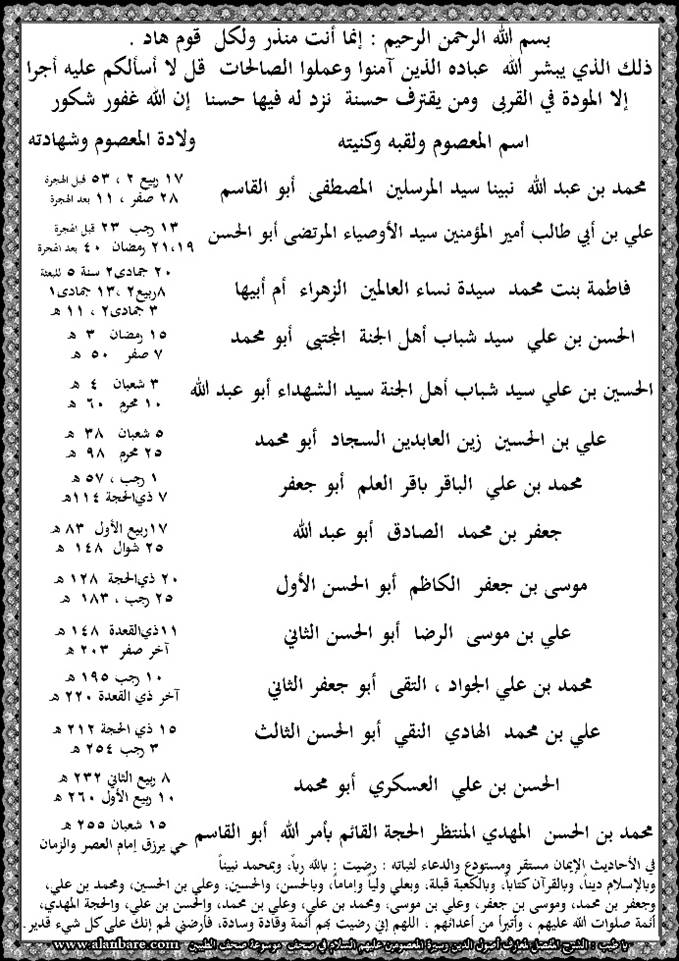 بسم الله الرحمن الرحيم : إنما أنت منذر ولكل قوم هاد .
ذلك الذي يبشر الله عباده الذين آمنوا وعملوا الصالحات قل لا أسألكم عليه أجرا
إلا المودة في القربى ومن يقترف حسنة نزد له فيها حسنا إن الله غفور شكور
اسم المعصوم ولقبه وكنيته ولادة المعصوم وشهادته
محمد بن عبد الله نبينا سيد المرسلين المصطفى أبو القاسم
١٧ ربيع ٢ ، ٥٣ قبل الهجرة
٢٨ صفر ، ١١ بعد الهجرة
علي بن أبي طالب أمير المؤمنين سيد الأوصياء المرتضى أبو الحسن
١٣ رجب ٢٣ قبل الهجرة
٢١،١٩ رمضان ٤٠ بعد الهجرة
فاطمة بنت محمد سيدة نساء العالمين الزهراء أم أبيها
٢٠ جمادى٢ سنة ٥ للبعثة
٨ربيع٢ ،١٣ جمادى١
٣ جمادى٢ ، ١١ هـ
الحسن بن علي سيد شباب أهل الجنة المجتبى أبو محمد
١٥ رمضان ٣ هـ
٧ صفر ٥٠ هـ
الحسين بن علي سيد شباب أهل الجنة سيد الشهداء أبو عبد الله
٣ شعبان ٤ هـ
١٠ محرم ٦٠ هـ
علي بن الحسين زين العابدين السجاد أبو محمد
٥ شعبان ٣٨ هـ
٢٥ محرم ٩٨ هـ
محمد بن علي الباقر باقر العلم أبو جعفر
١ رجب ، ٥٧ هـ
٧ ذي الحجة ١١٤هـ
جعفر بن محمد الصادق أبو عبد الله
١٧ربيع الأول ٨٣ هـ
٢٥ شوال ١٤٨ هـ
موسى بن جعفر الكاظم أبو الحسن الأول
٢٠ ذي الحجة ١٢٨ هـ
٢٥ رجب ، ١٨٣ هـ
علي بن موسى الرضا أبو الحسن الثاني
١١ذي القعدة ١٤٨ هـ
آخر صفر ٢٠٣ هـ
محمد بن علي الجواد ، التقى أبو جعفر الثاني
١٠ رجب ١٩٥ هـ
آخر ذي القعدة ٢٢٠ هـ
علي بن محمد الهادي النقي أبو الحسن الثالث
١٥ ذي الحجة ٢١٢ هـ
٣ رجب ٢٥٤ هـ
الحسن بن علي العسكري أبو محمد
٨ ربيع الثاني ٢٣٢ هـ
١٠ ربيع الأول ٢٦٠ هـ
محمد بن الحسن المهدي المنتظر الحجة القائم بأمر الله أبو القاسم
١٥ شعبان ٢٥٥ هـ
حي يرزق إمام العصر والزمان
في الأحاديث الإيمان مستقر ومستودع والدعاء لثباته : رضيت بالله رباً، وبمحمد نبيناً
وبالإسلام ديناً، وبالقرآن كتاباً، وبالكعبة قبلة، وبعلي ولياً وإماماً، وبالحسن، والحسين، وعلي بن الحسين، ومحمد بن علي،
وجعفر بن محمد، وموسى بن جعفر، وعلي بن موسى، ومحمد بن علي، وعلي بن محمد، والحسن بن علي، والحجة المهدي،
أئمة صلوات الله عليهم ، وأتبرأ من أعدائهم . اللهم إني رضيت بهم أئمة وقادة وسادة، فأرضني لهم إنك على كل شيء قدير.
يا طيب : الشرح المفصل لمعارف أصول الدين وسيرة المعصومين عليهم السلام في صحف موسوعة صحف الطيبين www.alanbare.com